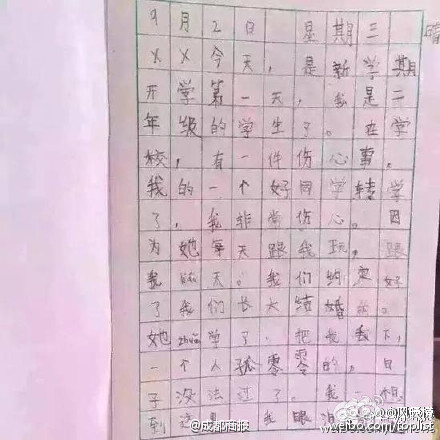 9月2日 星期三 晴
××今天，是新学期
开学第一天，我是二
年级的学生了。在学
校，有一件伤心事。
我的一个好同学转学
了，我非常伤心。因
为她每天跟我玩，跟
我聊天。我们约定好
了我们长大结婚的。
她zhuǎn学了，把我丢下，
一个人孤零零的，日
子没法过了。我一想
到这里，我眼泪
@成都商报